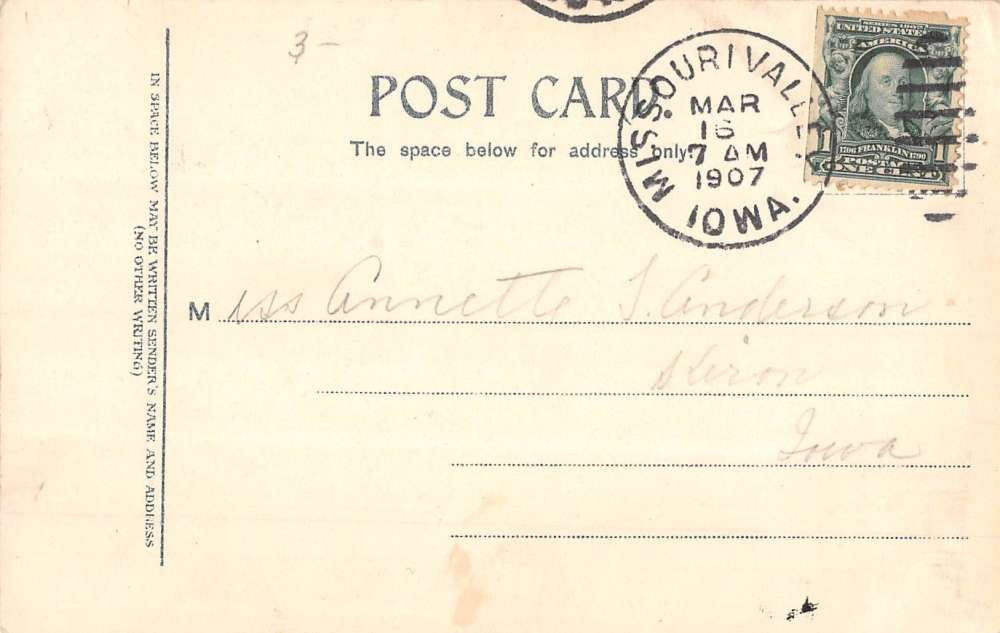 3-
POST CARD
The space below for address only.
MISSOURI VALLEY
MAR
16
7 AM
1907
IOWA.
SERIES 1902
UNITED STATES
AMERICA
1 1706 FRANKLIN 1790 1
POSTAGE
ONE CENT
IN SPACE BELOW MAY BE WRITTEN SENDER'S NAME AND ADDRESS
(NO OTHER WRITING)
Miss Annette S. Anderson
Kiron
Iowa